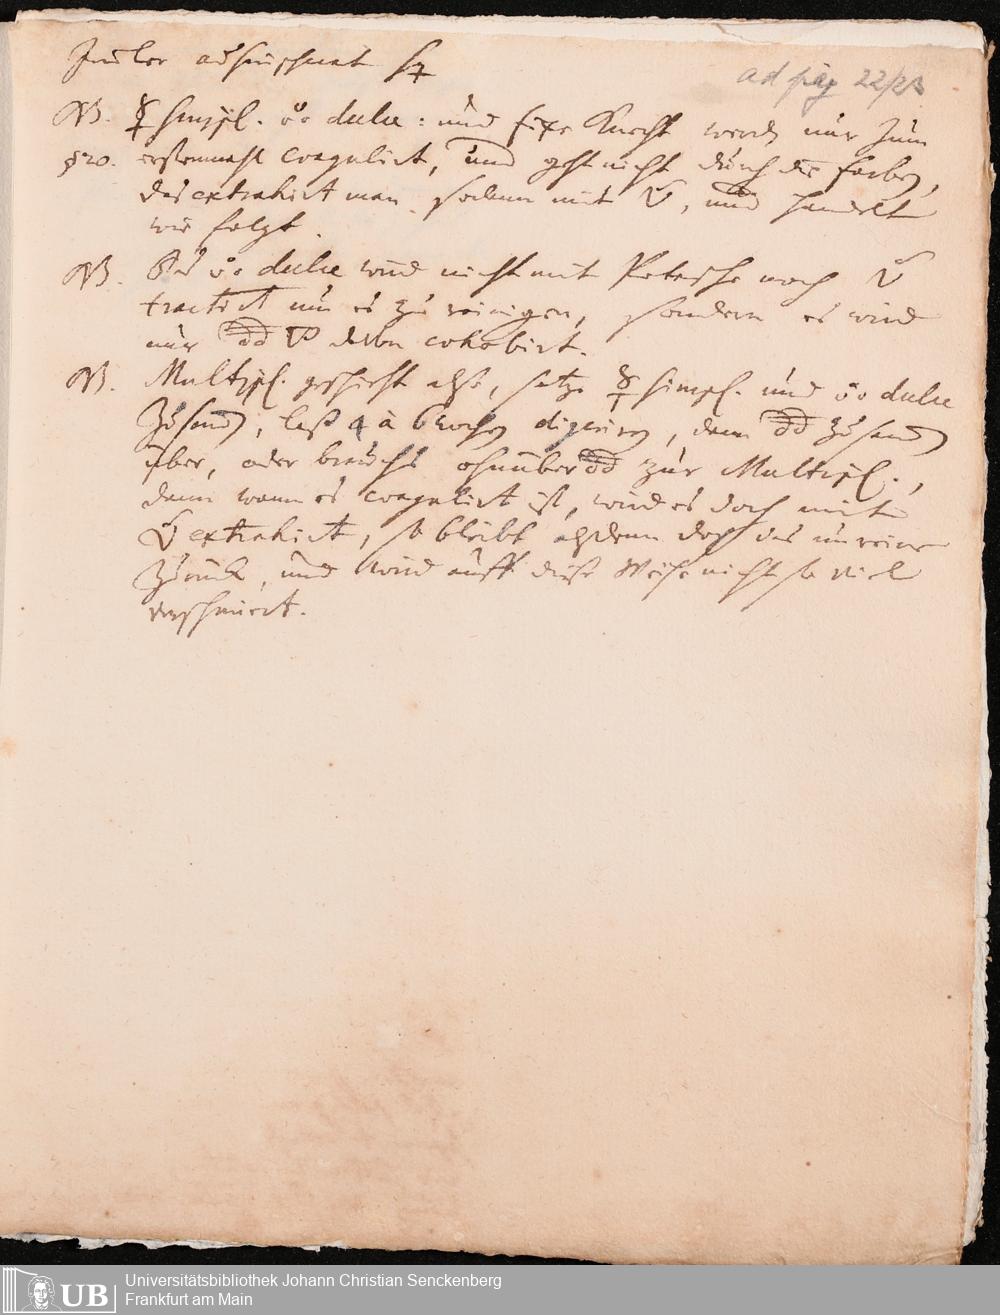 ad pag 22/23
NB. ☿ simpl. o°o dulce: und fixe Knecht werden nur zum
erstenmahl coagulirt, und geht nicht durch die farben,
das extrahirt man sodann mit, und handelt
wie folgt.
NB. Das o°o dulce wird nicht mit noch
tractirt um es zu reinigen, sondern es wird
nur davon cohobirt.
NB. Multipl. geschieht also, setze ☿ simpl. und o°o dulce
zusamen, laß 4 à 6 wochen digeriren, dann zusamen
über, oder brauchs ohnüber zur Multipl.,
dann wann es coagulirt ist, wird es doch mit
extrahirt, so bleibt alsdann doch das unreine
zurück, und wird auff diese Weise nicht so viel
verschmiert.
UB
Universitätsbibliothek Johann Christian Senckenberg
Frankfurt am Main